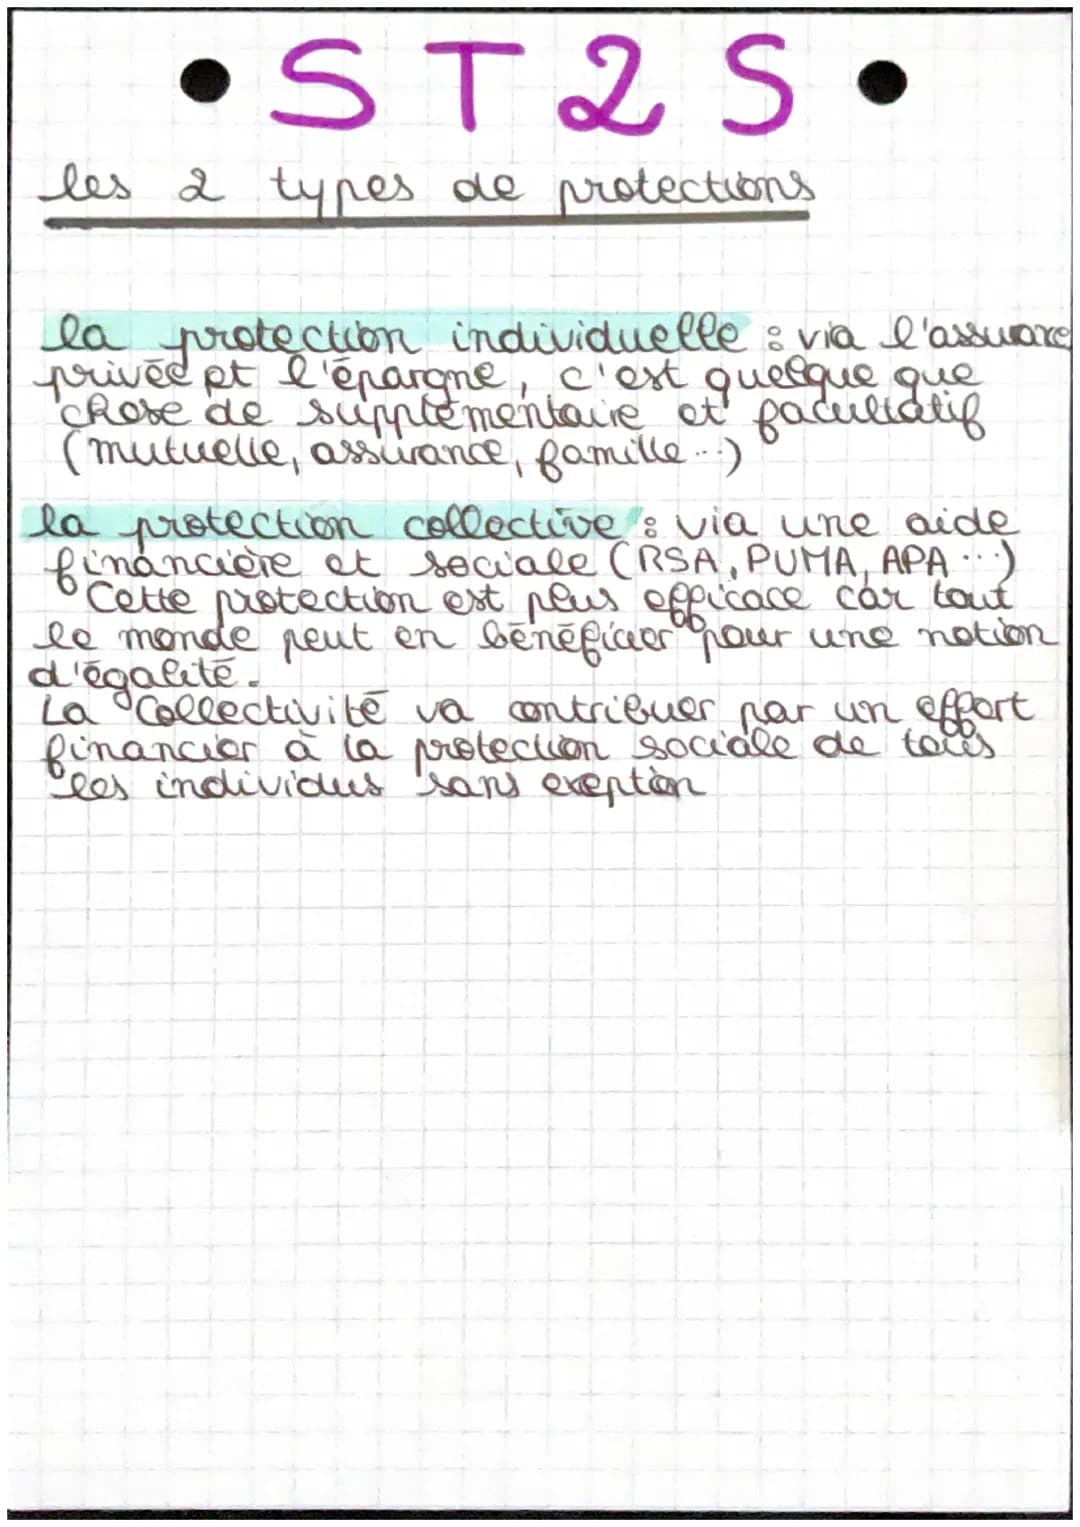 • ST2S •
les 2 types de protections
la protection individuelle : via l'assurance
privée et l'épargne, c'est quelque que
chose de supplémentaire et facultatif
(mutuelle, assurance, famille...)
la protection collective : via une aide
financière et sociale (RSA, PUMA, APA...)
Cette protection est plus efficace car tout
le monde peut en bénéficier pour une notion
d'égalité.
La Collectivité va contribuer par un effort
financier à la protection sociale de tous
les individus sans exeption